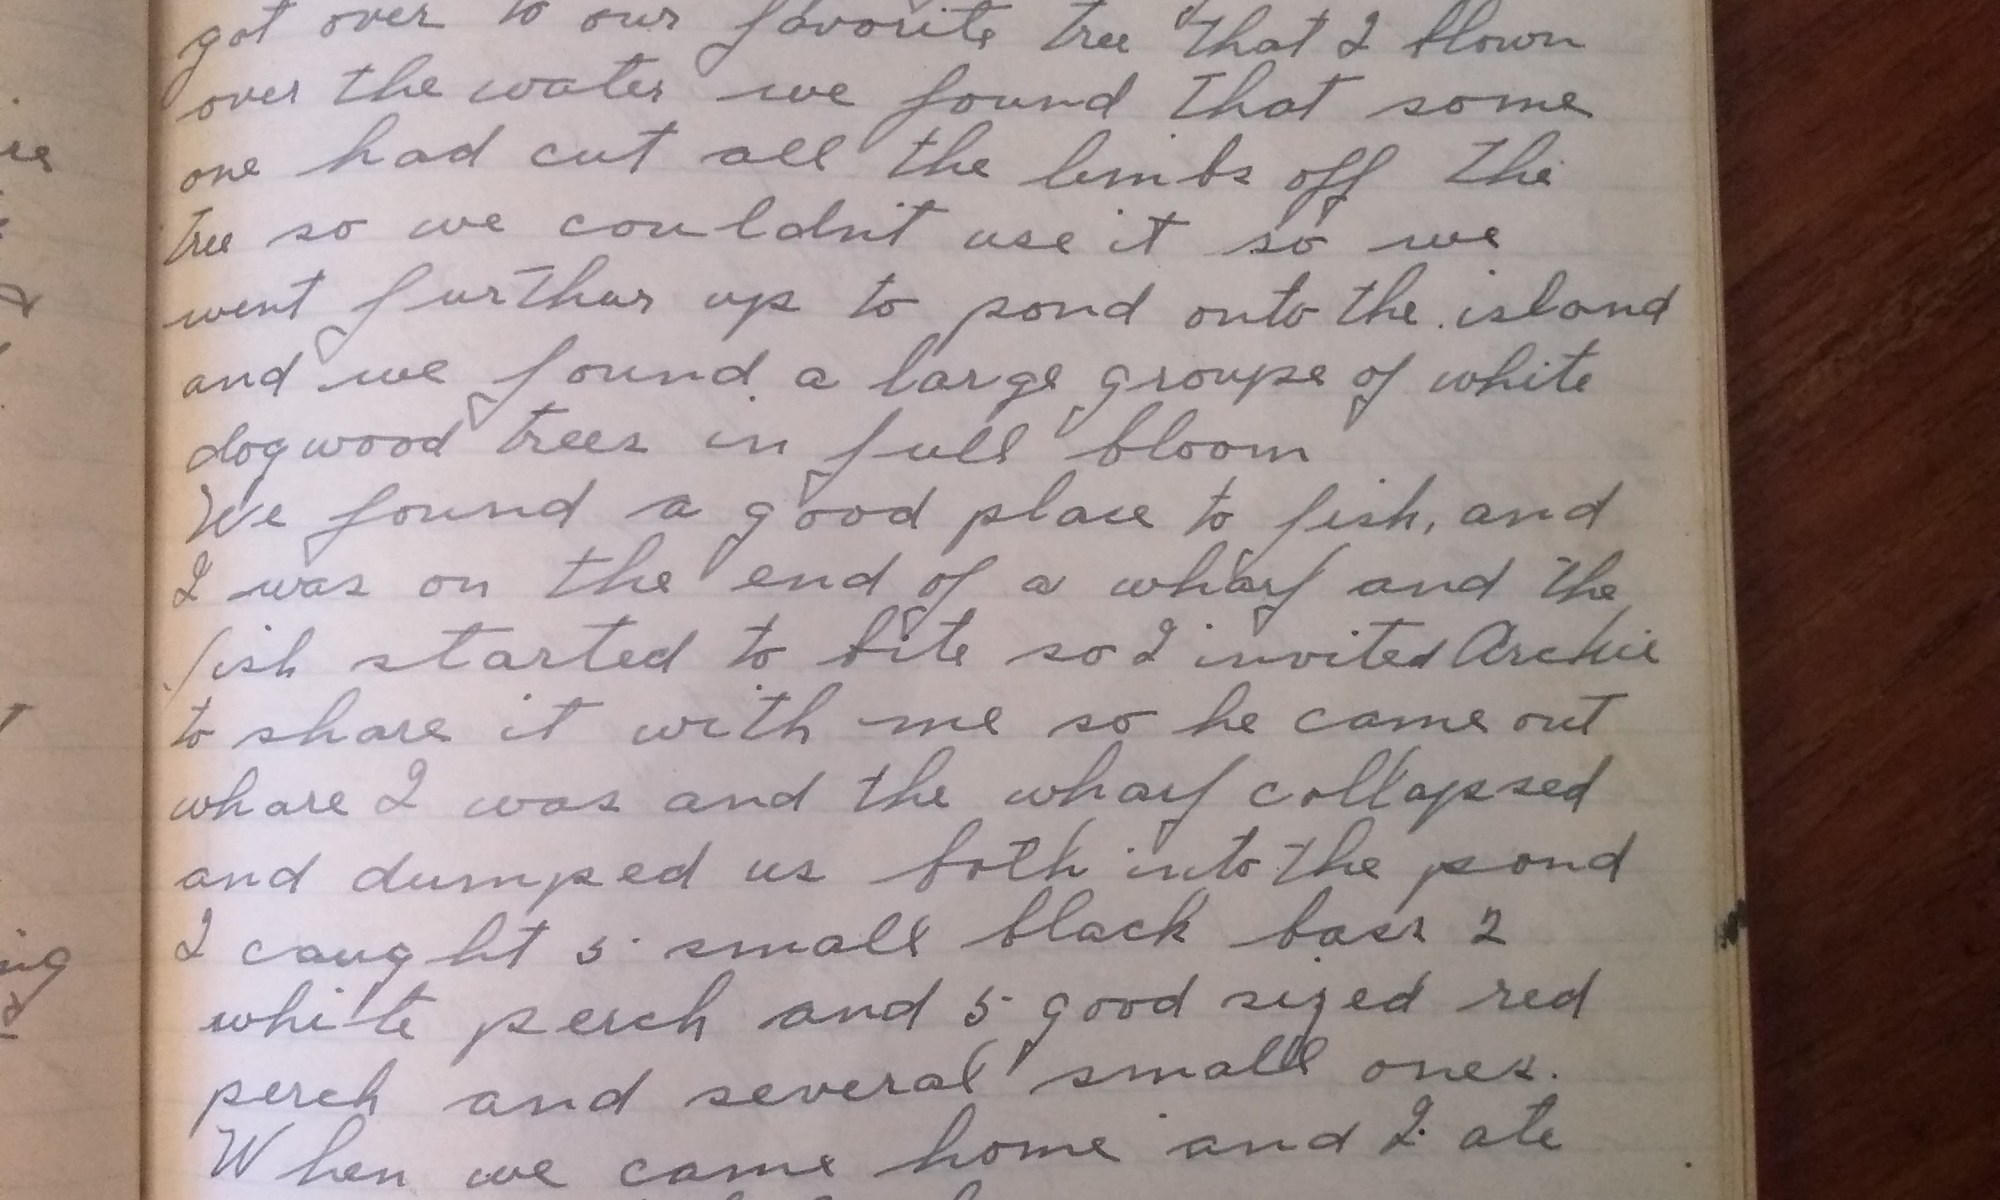 got over to our favorite tree that I blown
over the water we found that some
one had cut all the limbs off the
tree so we couldn't use it so we
went furthur up to pond onto the island
and we found a large groupe of white
dogwood trees in full bloom
We found a good place to fish, and
I was on the end of a wharf and the
fish started to bite so I invited Archie
to share it with me so he came out
whare I was and the wharf collapsed
and dumped us both into the pond
I caught 5 small black bass 2
white perch and 5 good sized red
perch and several small ones.
When we came home and I ate